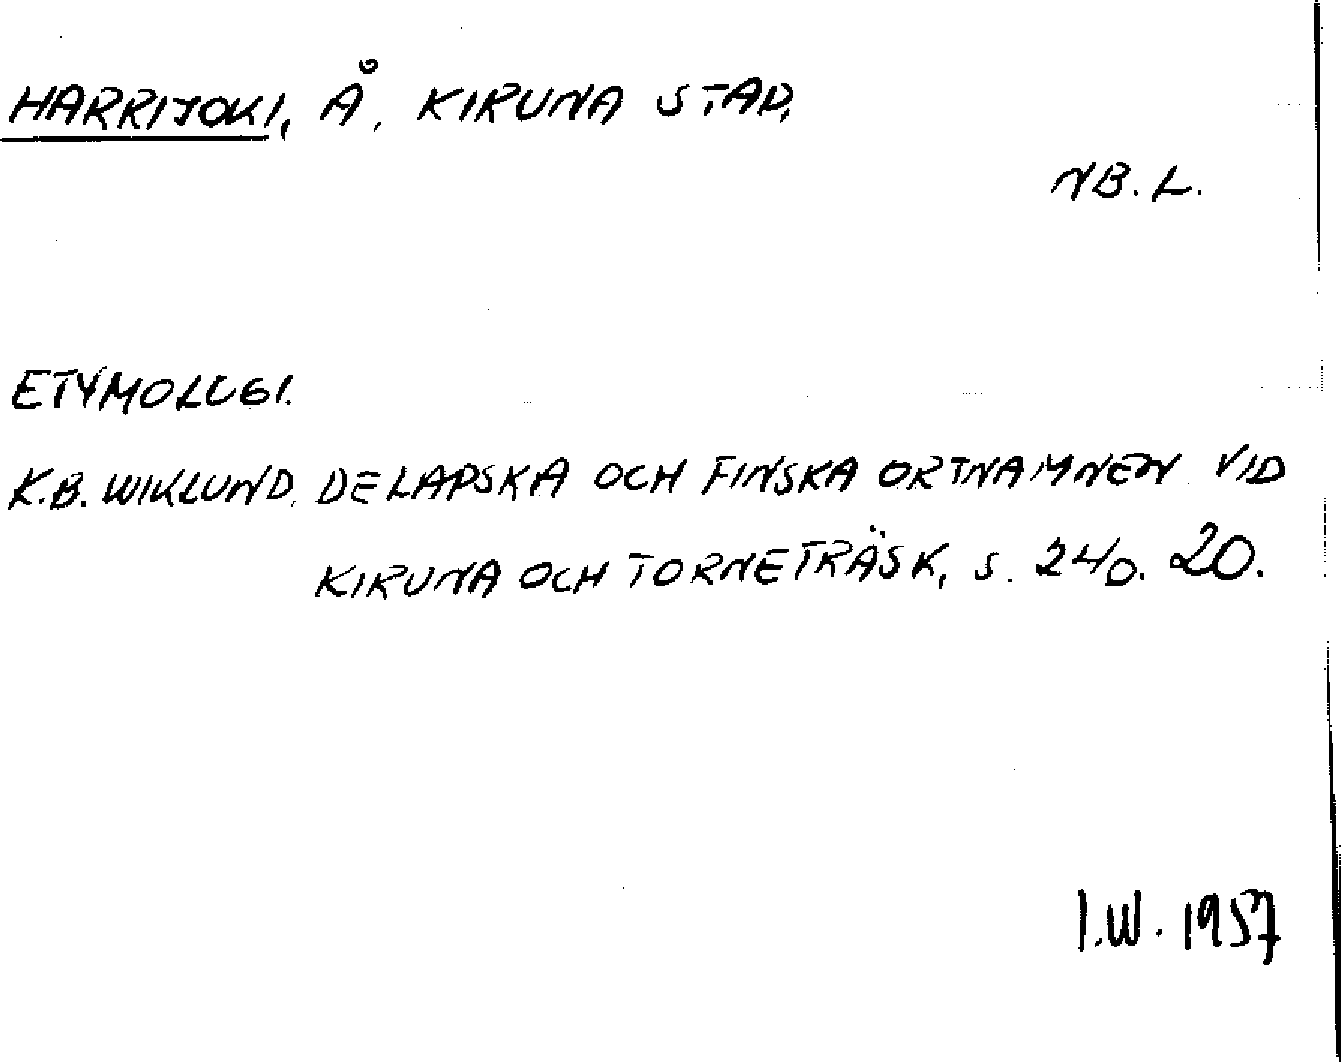 HARRIJOKI, Å, KIRUNA STAD,
NB. L.
ETYMOLOGI.
K.B. WIKLUND. DE LAPSKA OCH FINSKA ORTNAMNEN VID
KIRUNA OCH TORNETRÄSK, S. 24 o. 20.
I.W. 1957